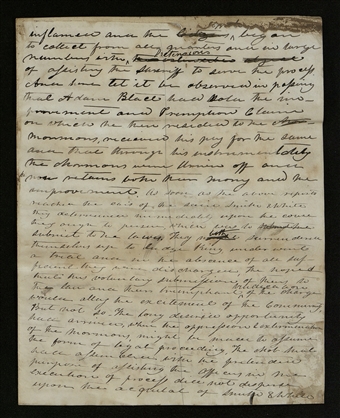 inflamed and the began
to collect from all quarters and in large
numbers with pretensions
of assisting the Sheriff to serve the process
And here let it be observed in passing
that Adam Black had sold the im-
provement and Premption Claim
on which he then resided to the
mormons, received his pay for the same
and that through his instrumentality
the Mormons were driven off and
now retains both their money and the
improvement. As soon as the above reports
reached the ears of the said Smith & White
they determined immediately upon the course
they ought to pursue, which was to
submit to the laws. They both surrendered
themselves up to be dealt with
a trial and in the absence of all suf
ficient they were discharged. They hoped
that this voluntary submission of them to
the law and their of the charge
would allay the excitement of the Community
But not so. The long desired opportunity
had arrived when the oppression & extermination
of the Mormons might be made to assume
the form of legal proceeding. The mob that
had assembled with the pretended
purpose of assisting the officers in the
execution of process did not disperse
upon the acquital of Smith & White